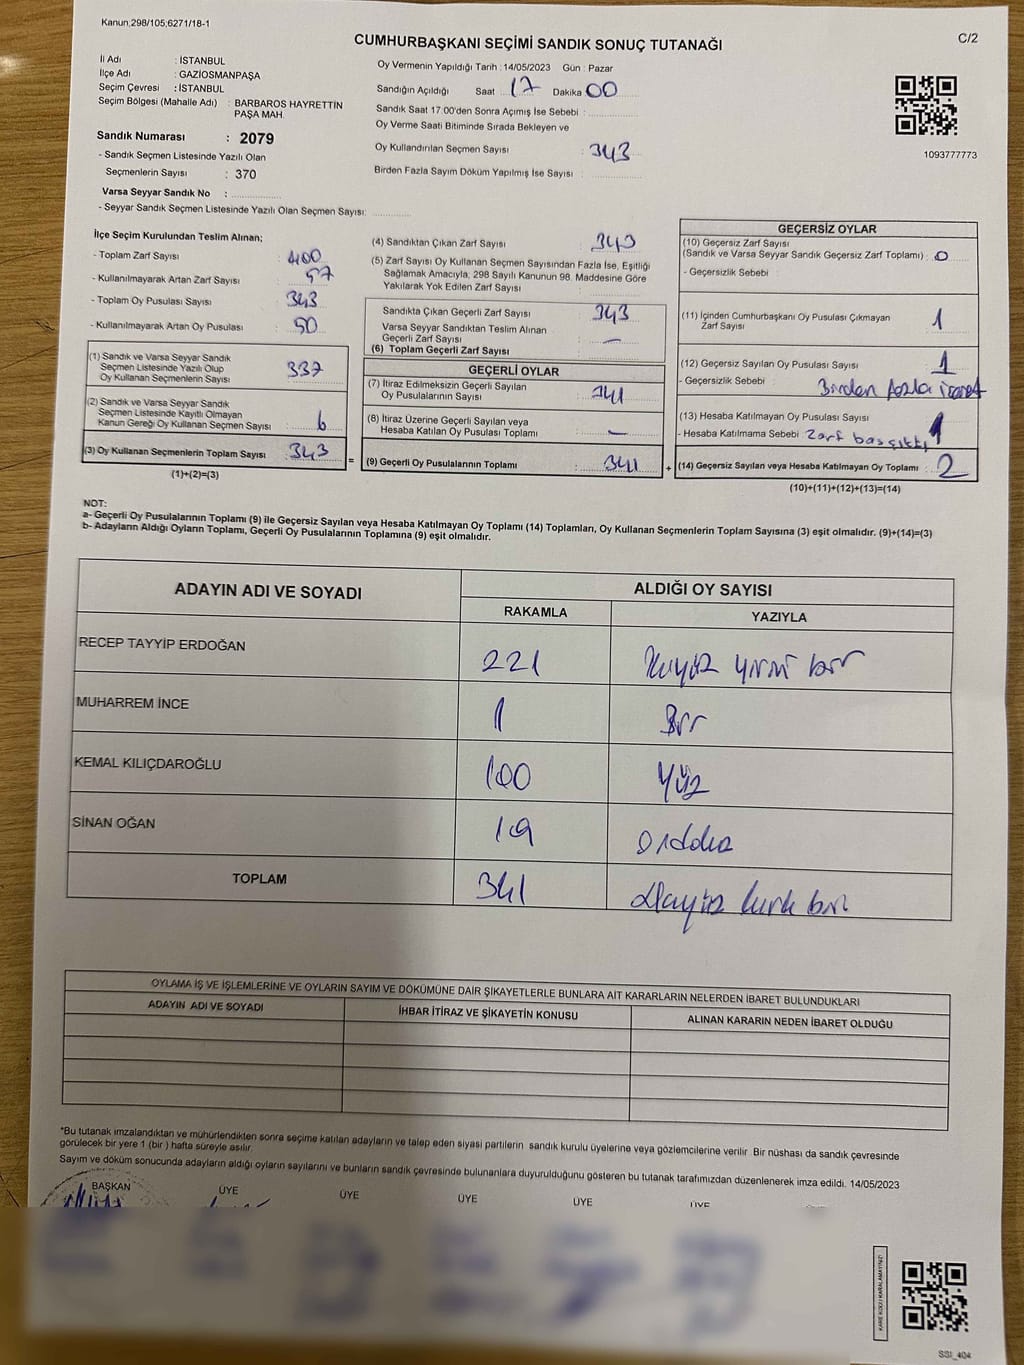 Kanun;298/105;6271/18-1
C/2
CUMHURBAŞKANI SEÇİMİ SANDIK SONUÇ TUTANAĞI
İl Adı : İSTANBUL
İlçe Adı : GAZİOSMANPAŞA
Seçim Çevresi : İSTANBUL
Seçim Bölgesi (Mahalle Adı) : BARBAROS HAYRETTİN
PAŞA MAH.
Sandık Numarası : 2079
- Sandık Seçmen Listesinde Yazılı Olan
Seçmenlerin Sayısı : 370
Varsa Seyyar Sandık No :
- Seyyar Sandık Seçmen Listesinde Yazılı Olan Seçmen Sayısı:
Oy Vermenin Yapıldığı Tarih : 14/05/2023 Gün : Pazar
Sandığın Açıldığı Saat 17 Dakika 00
Sandık Saat 17:00'den Sonra Açımış İse Sebebi :
Oy Verme Saati Bitiminde Sırada Bekleyen ve
Oy Kullandırılan Seçmen Sayısı : 343
Birden Fazla Sayım Döküm Yapılmış İse Sayısı :
1093777773
İlçe Seçim Kurulundan Teslim Alınan;
- Toplam Zarf Sayısı : 400
- Kullanılmayarak Artan Zarf Sayısı : 57
- Toplam Oy Pusulası Sayısı : 343
- Kullanılmayarak Artan Oy Pusulası : 50
(1) Sandık ve Varsa Seyyar Sandık
Seçmen Listesinde Yazılı Olup
Oy Kullanan Seçmenlerin Sayısı : 337
(2) Sandık ve Varsa Seyyar Sandık
Seçmen Listesinde Kayıtlı Olmayan
Kanun Gereği Oy Kullanan Seçmen Sayısı : 6
(3) Oy Kullanan Seçmenlerin Toplam Sayısı : 343
(1)+(2)=(3)
=
(4) Sandıktan Çıkan Zarf Sayısı : 343
(5) Zarf Sayısı Oy Kullanan Seçmen Sayısından Fazla İse, Eşitliği
Sağlamak Amacıyla, 298 Sayılı Kanunun 98. Maddesine Göre
Yakılarak Yok Edilen Zarf Sayısı :
Sandıkta Çıkan Geçerli Zarf Sayısı : 343
Varsa Seyyar Sandıktan Teslim Alınan
Geçerli Zarf Sayısı : —
(6) Toplam Geçerli Zarf Sayısı
GEÇERLİ OYLAR
(7) İtiraz Edilmeksizin Geçerli Sayılan
Oy Pusulalarının Sayısı : 341
(8) İtiraz Üzerine Geçerli Sayılan veya
Hesaba Katılan Oy Pusulası Toplamı : —
(9) Geçerli Oy Pusulalarının Toplamı : 341
+
GEÇERSİZ OYLAR
(10) Geçersiz Zarf Sayısı
(Sandık ve Varsa Seyyar Sandık Geçersiz Zarf Toplamı) : 0
- Geçersizlik Sebebi :
(11) İçinden Cumhurbaşkanı Oy Pusulası Çıkmayan
Zarf Sayısı : 1
(12) Geçersiz Sayılan Oy Pusulası Sayısı : 1
- Geçersizlik Sebebi : Birden fazla işaret
(13) Hesaba Katılmayan Oy Pusulası Sayısı : 1
- Hesaba Katılmama Sebebi Zarf boş çıktı
(14) Geçersiz Sayılan veya Hesaba Katılmayan Oy Toplamı : 2
(10)+(11)+(12)+(13)=(14)
NOT:
a- Geçerli Oy Pusulalarının Toplamı (9) ile Geçersiz Sayılan veya Hesaba Katılmayan Oy Toplamı (14) Toplamları, Oy Kullanan Seçmenlerin Toplam Sayısına (3) eşit olmalıdır. (9)+(14)=(3)
b- Adayların Aldığı Oyların Toplamı, Geçerli Oy Pusulalarının Toplamına (9) eşit olmalıdır.
ADAYIN ADI VE SOYADI ALDIĞI OY SAYISI
RAKAMLA YAZIYLA
RECEP TAYYİP ERDOĞAN 221 İkiyüz yirmi bir
MUHARREM İNCE 1 Bir
KEMAL KILIÇDAROĞLU 100 Yüz
SİNAN OĞAN 19 ondokuz
TOPLAM 341 üçyüz kırk bir
OYLAMA İŞ VE İŞLEMLERİNE VE OYLARIN SAYIM VE DÖKÜMÜNE DAİR ŞİKAYETLERLE BUNLARA AİT KARARLARIN NELERDEN İBARET BULUNDUKLARI
ADAYIN ADI VE SOYADI İHBAR İTİRAZ VE ŞİKAYETİN KONUSU ALINAN KARARIN NEDEN İBARET OLDUĞU
*Bu tutanak imzalandıktan ve mühürlendikten sonra seçime katılan adayların ve talep eden siyasi partilerin sandık kurulu üyelerine veya gözlemcilerine verilir. Bir nüshası da sandık çevresinde
görülecek bir yere 1 (bir ) hafta süreyle asılır.
Sayım ve döküm sonucunda adayların aldığı oyların sayılarını ve bunların sandık çevresinde bulunanlara duyurulduğunu gösteren bu tutanak tarafımızdan düzenlenerek imza edildi. 14/05/2023
BAŞKAN ÜYE ÜYE ÜYE ÜYE ÜYE
KARE KODU KARALAMAYINIZ!
SSI_404